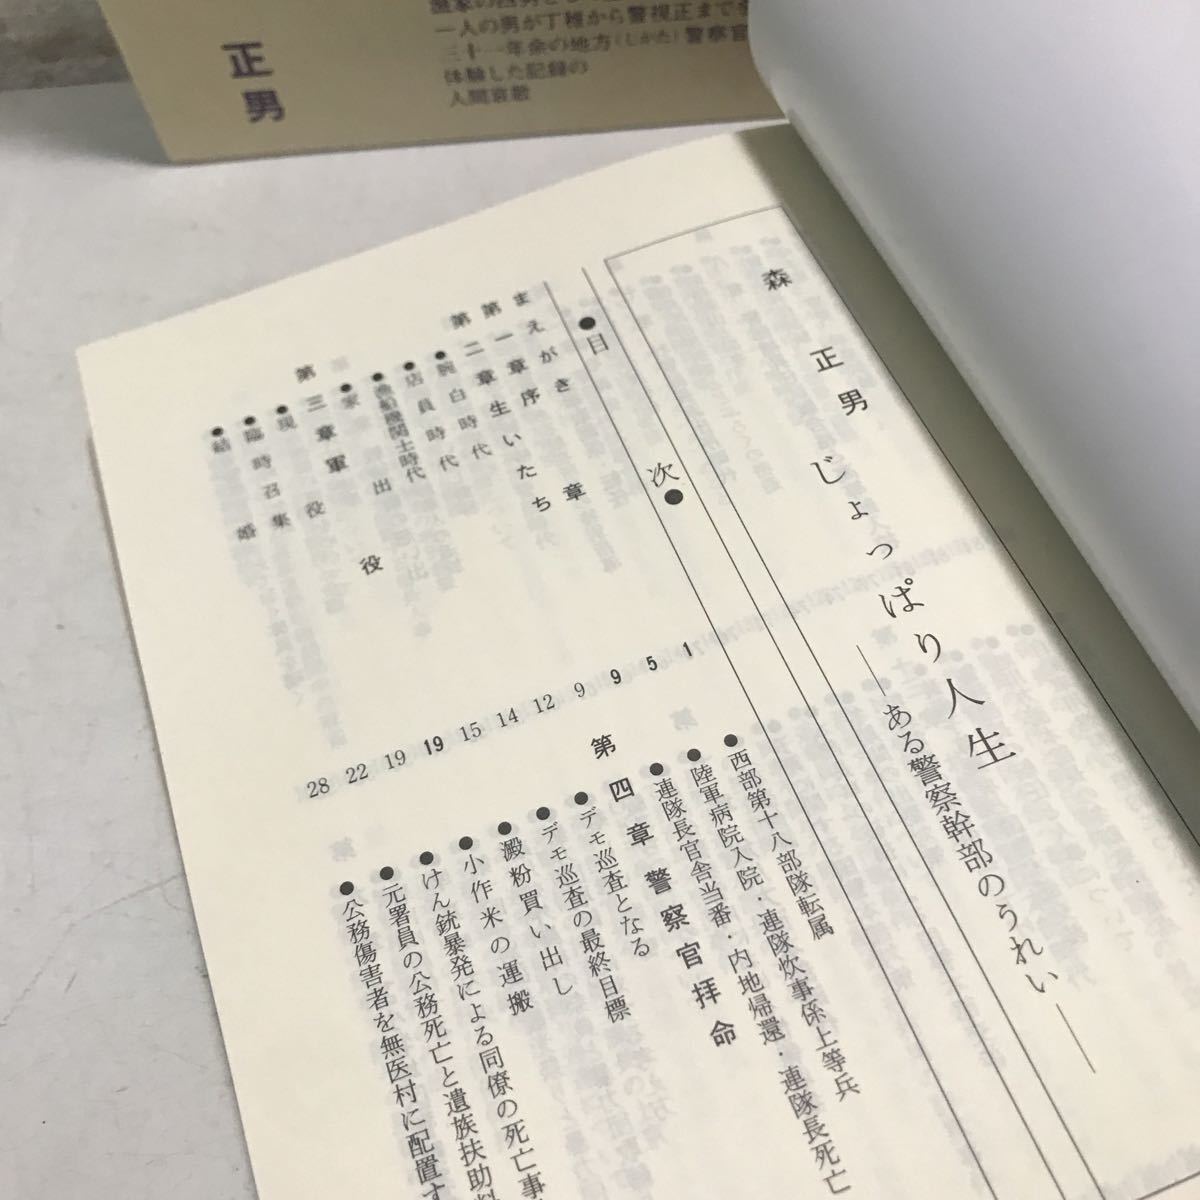 正男
一人の男が丁稚から警視正まで
三十一年余の地方（じかた）警察官
体験した記録の
人間哀歓
森正男 じょっぱり人生
―ある警察幹部のうれい―
●目次●
まえがき 1
第一章 序章 5
第二章 生いたち 9
●腕白時代 9
●店員時代 12
●漁船機関士時代 14
●家出 15
第三章 軍役 19
●現役 19
●臨時召集 22
●結婚 28
●西部第十八部隊転属
●陸軍病院入院・連隊炊事係上等兵
●連隊長官舎当番・内地帰還・連隊長死亡
第四章 警察官拝命
●デモ巡査となる
●デモ巡査の最終目標
●澱粉買い出し
●小作米の運搬
●けん銃暴発による同僚の死亡事
●元署員の公務死亡と遺族扶助料
●公務傷害者を無医村に配置す